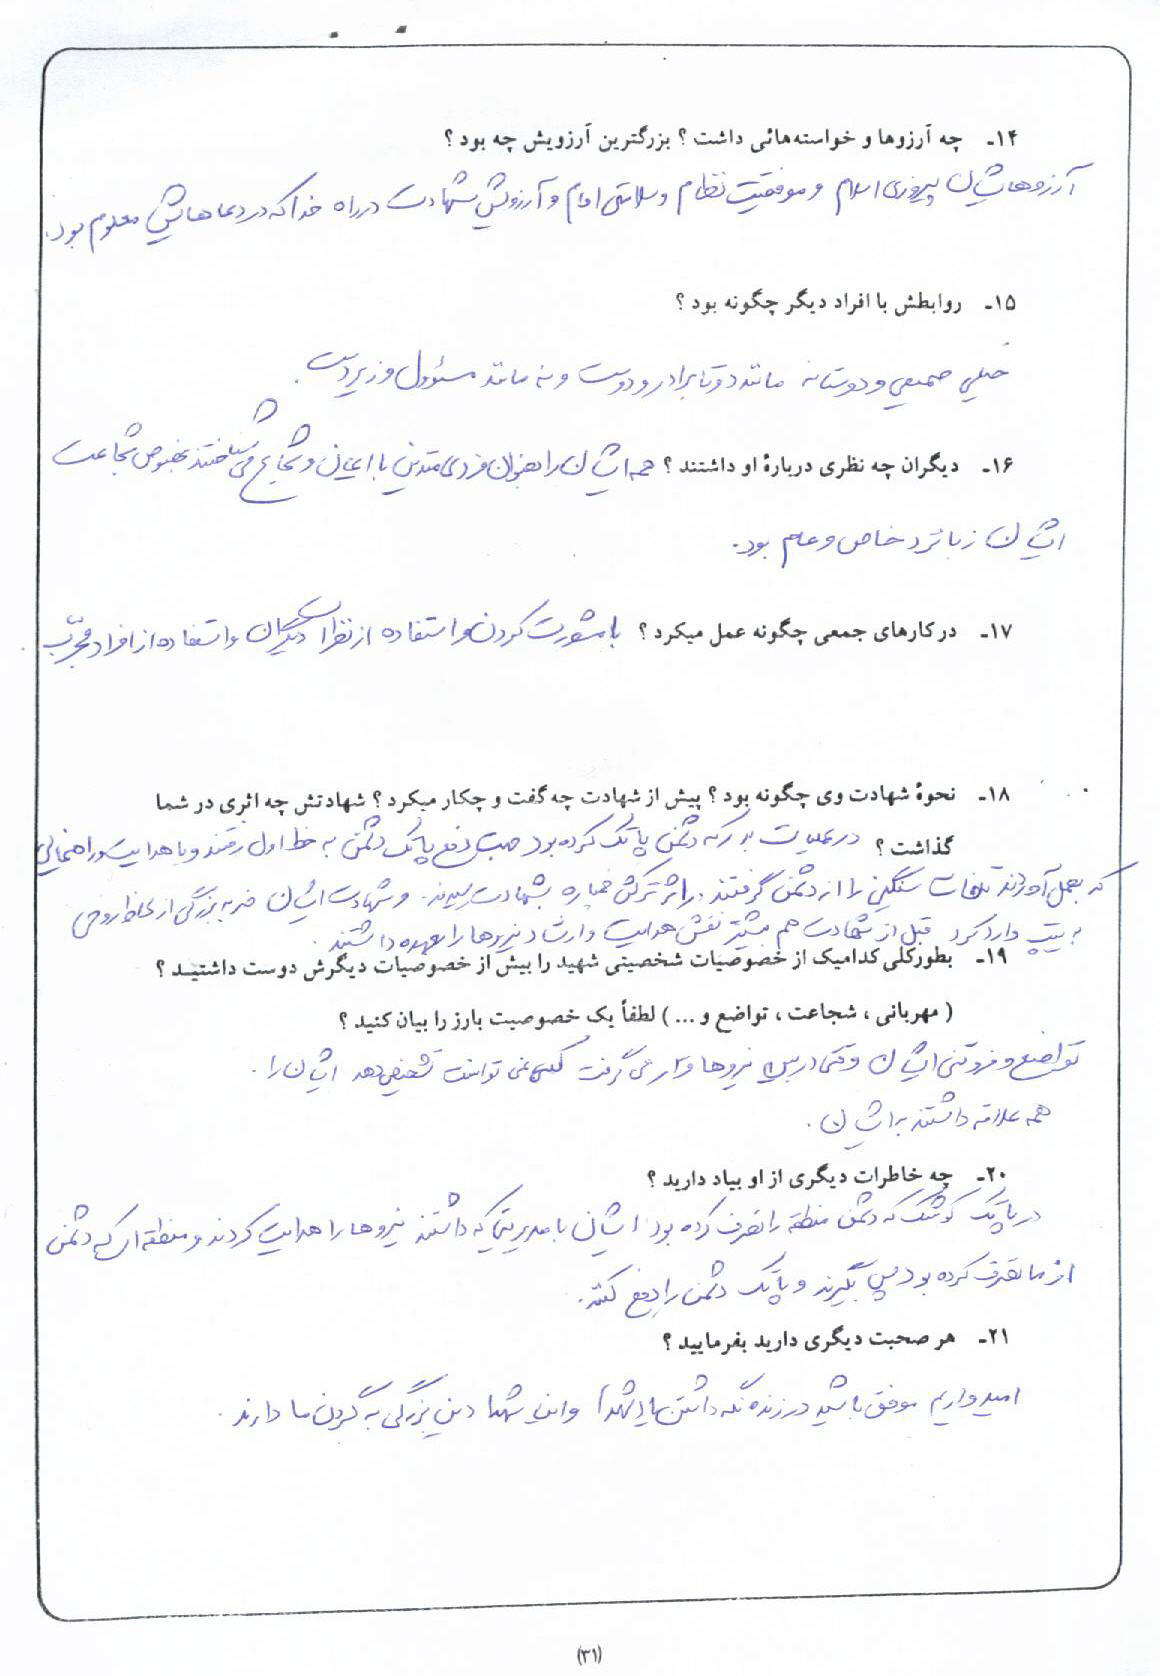 ۱۴ـ چه آرزوها و خواسته‌هائی داشت ؟ بزرگترین آرزویش چه بود ؟
آرزوهایشان پیروزی اسلام و موفقیت نظام و سلامتی امام و آرزویش شهادت در راه خدا که در دعاهایش معلوم بود.
۱۵ـ روابطش با افراد دیگر چگونه بود ؟
خیلی صمیمی و دوستانه مانند دوتا برادر و دوست و نه مانند مسئوول و زیردست.
۱۶ـ دیگران چه نظری دربارهٔ او داشتند ؟ همه ایشان را بعنوان فردی متدین با ایمان و شجاع می شناختند بخصوص شجاعت
ایشان زبانزد خاص و عام بود.
۱۷ـ درکارهای جمعی چگونه عمل میکرد ؟ با مشورت کردن و استفاده از نظرات دیگران و استفاده از افراد مجرّب
۱۸ـ نحوهٔ شهادت وی چگونه بود ؟ پیش از شهادت چه گفت و چکار میکرد ؟ شهادتش چه اثری در شما
گذاشت ؟ در عملیات بدر که دشمن پاتک کرده بود جهت دفع پاتک دشمن به خط اول رفتند و با هدایت و راهنمائی
که بعمل آوردند تلفات سنگینی را از دشمن گرفتند در اثر ترکش خمپاره بشهادت رسیدند. و شهادت ایشان ضربه بزرگی از لحاظ روحی
به تیپ وارد کرد قبل از شهادت هم بیشتر نقش هدایت و ارشاد نیروها را بعهده داشتند.
۱۹ـ بطورکلی کدامیک از خصوصیات شخصیتی شهید را بیش از خصوصیات دیگرش دوست داشتیـد ؟
( مهربانی ، شجاعت ، تواضع و ... ) لطفاً یک خصوصیت بارز را بیان کنید ؟
تواضع و فروتنی ایشان وقتی در بین نیروها قرار می گرفت کسی نمی توانست تشخیص دهد ایشان را.
همه علاقه داشتند به ایشان.
۲۰ـ چه خاطرات دیگری از او بیاد دارید ؟
در پاتک کوشک که دشمن منطقه را تصرف کرده بود ایشان با مدیریتی که داشتند نیروها را هدایت کردند و منطقه ای که دشمن
از ما تصرف کرده بود پس بگیرند و پاتک دشمن را دفع کنند.
۲۱ـ هر صحبت دیگری دارید بفرمایید ؟
امیدواریم موفق باشید در زنده نگه داشتن یاد شهدا و این شهدا دین بزرگی به گردن ما دارند.
(۳۱)